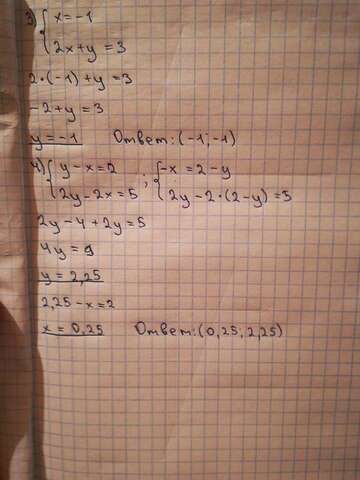 3) { x = -1
2x + y = 3
2 * (-1) + y = 3
-2 + y = 3
y = -1 Ответ: (-1; -1)
4) { y - x = 2 ; { -x = 2 - y
2y - 2x = 5 2y - 2 * (2 - y) = 5
2y - 4 + 2y = 5
4y = 9
y = 2,25
2,25 - x = 2
x = 0,25 Ответ: (0,25; 2,25)